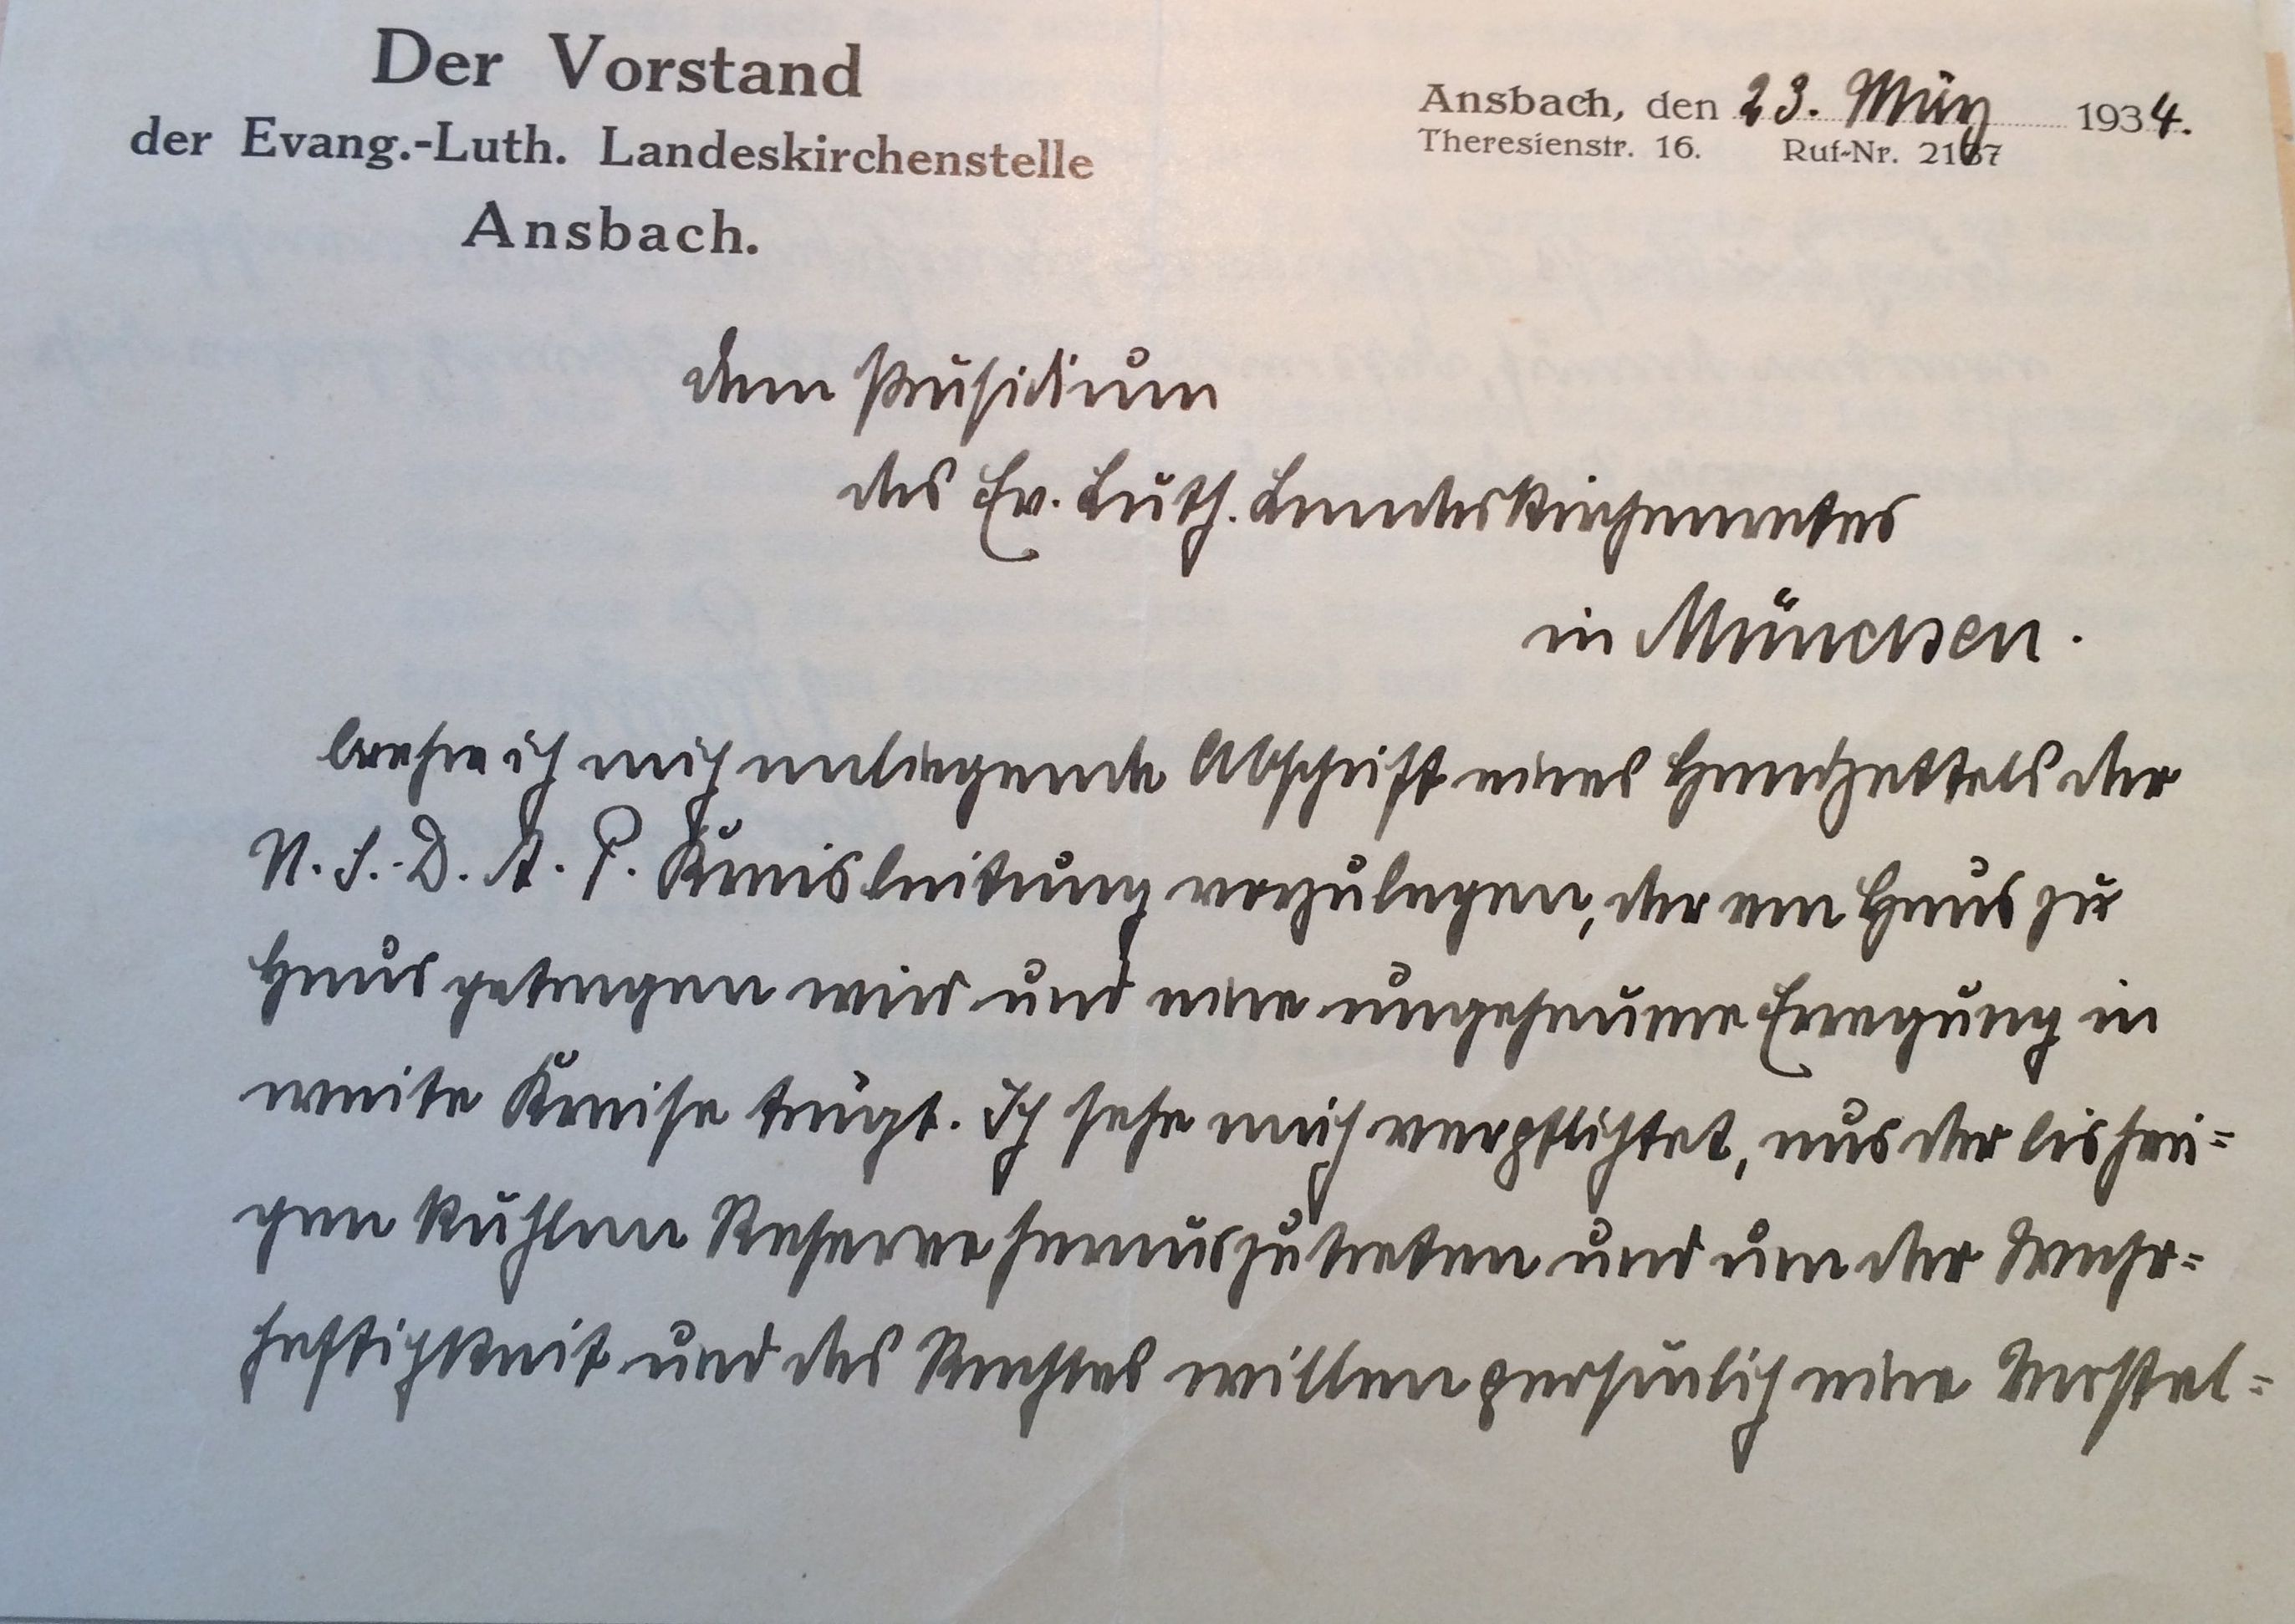 Der Vorstand
der Evang.-Luth. Landeskirchenstelle
Ansbach.
Ansbach, den 23. März 1934.
Theresienstr. 16. Ruf-Nr. 2167
dem Präsidium
des Ev. Luth. Landeskirchenrates
in München.
beehre ich mich anliegende Abschrift eines Handzettels der
N.S.D.A.P. Kreisleitung vorzulegen, der von Haus zu
Haus getragen wird und eine ungeheure Erregung in
weite Kreise trägt. Ich sehe mich verpflichtet, aus der bisheri=
gen kühlen Reserve herauszutreten und um der Wahr=
haftigkeit und des Rechtes willen persönlich eine Vorstel=